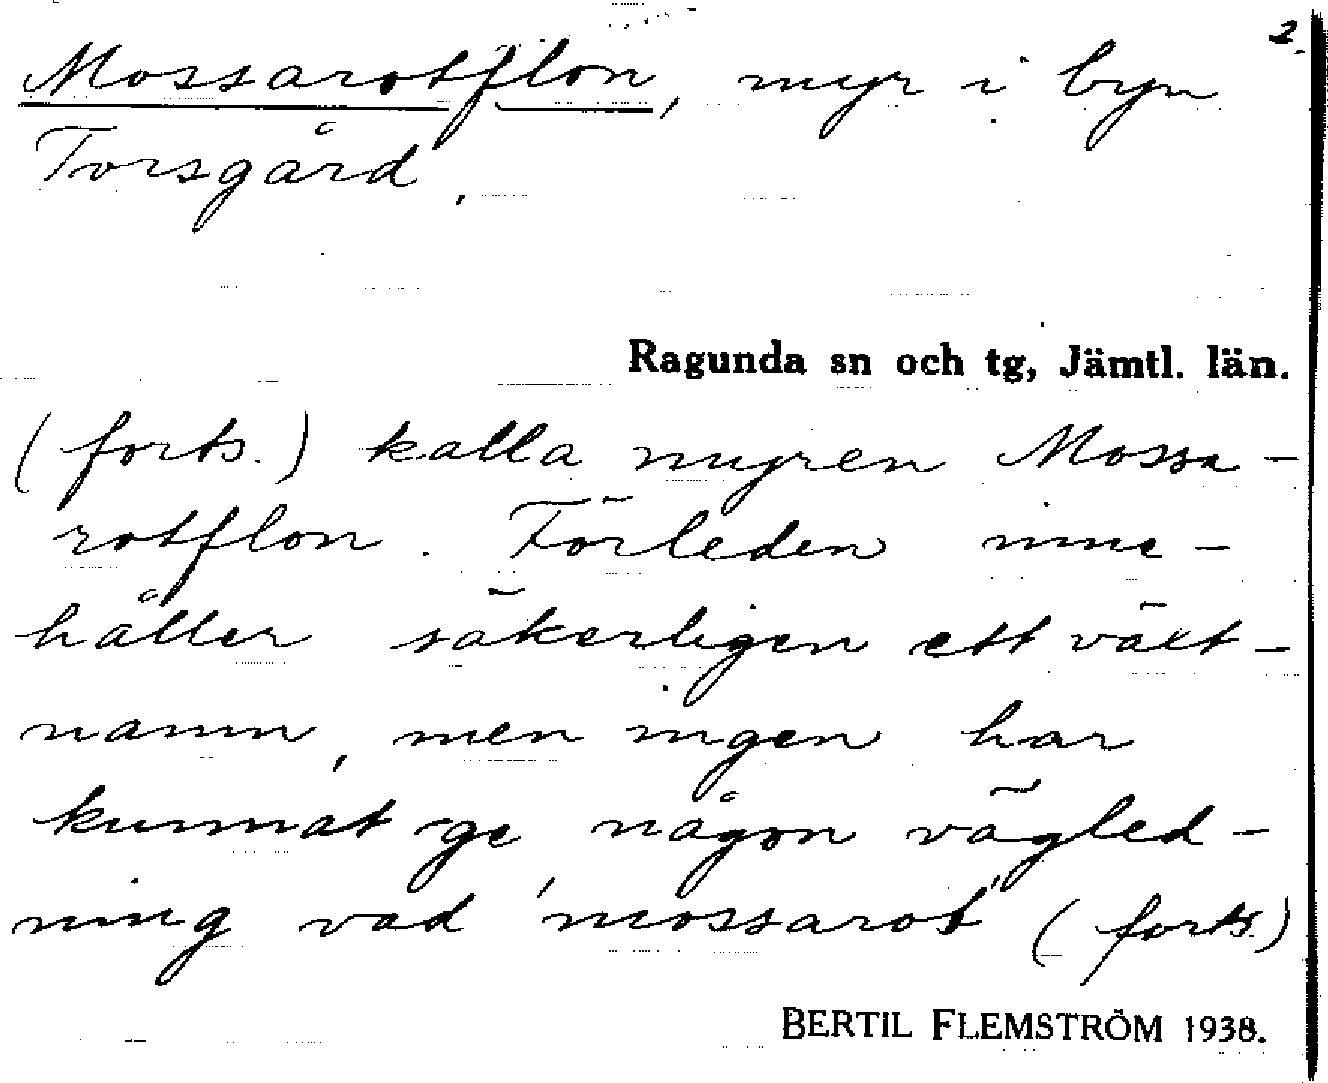 2.
Mossarotflon, myr i byn
Torsgård.
Ragunda sn och tg, Jämtl. län.
(forts.) kalla myren Mossa-
rotflon. Förleden inne-
håller säkerligen ett växt-
namn, men ingen har
kunnat ge någon vägled-
ning vad 'mossarot' (forts.)
BERTIL FLEMSTRÖM 1938.